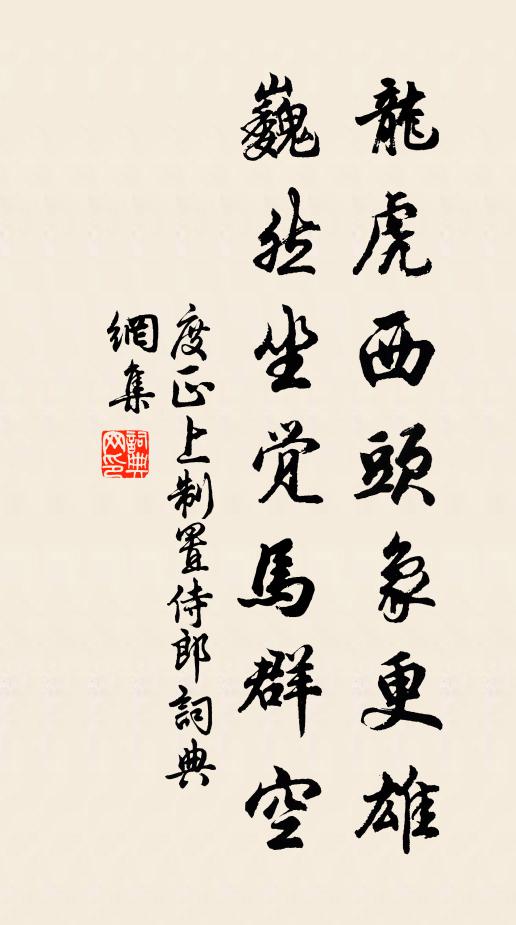 龍虎西頭象更雄
巍然坐觉馬群空
度正上制置侍郎詞典
網集
詞典
网印